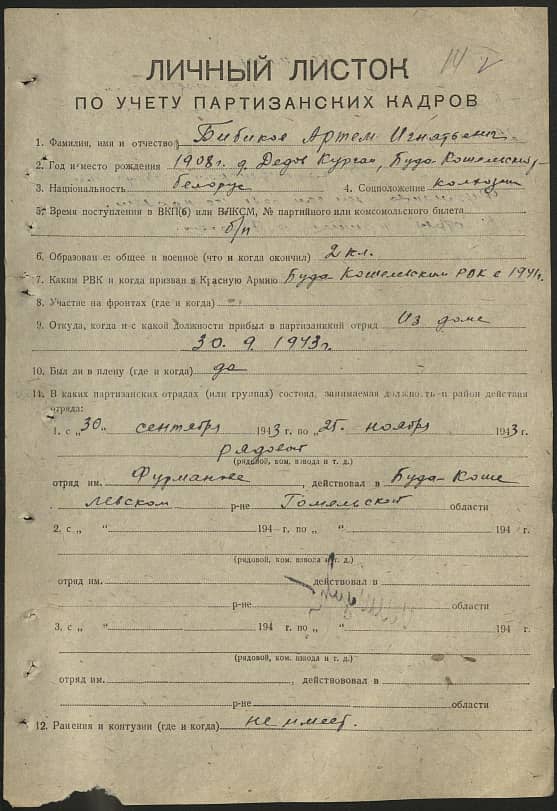 14
ЛИЧНЫЙ ЛИСТОК
ПО УЧЕТУ ПАРТИЗАНСКИХ КАДРОВ
1. Фамилия, имя и отчество Бибиков Артем Игнатьевич
2. Год и место рождения 1908 г. д. Дедов Курган, Буда Кошелевский
3. Национальность белорус 4. Соцположение колхозник
5. Время поступления в ВКП(б) или ВЛКСМ, № партийного или комсомольского билета
б/п
6. Образование: общее и военное (что и когда окончил) 2 кл.
7. Каким РВК и когда призван в Красную Армию Буда Кошелевским РВК в 1941 г.
8. Участие на фронтах (где и когда) -
9. Откуда, когда и с какой должности прибыл в партизанский отряд Из дома
30. 9. 1943 г.
10. Был ли в плену (где и когда) да
11. В каких партизанских отрядах (или группах) состоял, занимаемая должность и район действия
отряда:
1. с „30“ сентября 1943 г. по „25“ ноября 1943 г.
рядовой
(рядовой, ком. взвода и т. д.)
отряд им. Фурманова действовал в Буда-Коше
левском р-не Гомельской области
2. с „ “ 194 г. по „ “ 194 г.
(рядовой, ком. взвода и т. д.)
отряд им. действовал в
р-не области
3. с „ “ 194 г. по „ “ 194 г.
(рядовой, ком. взвода и т. д.)
отряд им. действововал в
р-не области
12. Ранения и контузии (где и когда) не имеет.